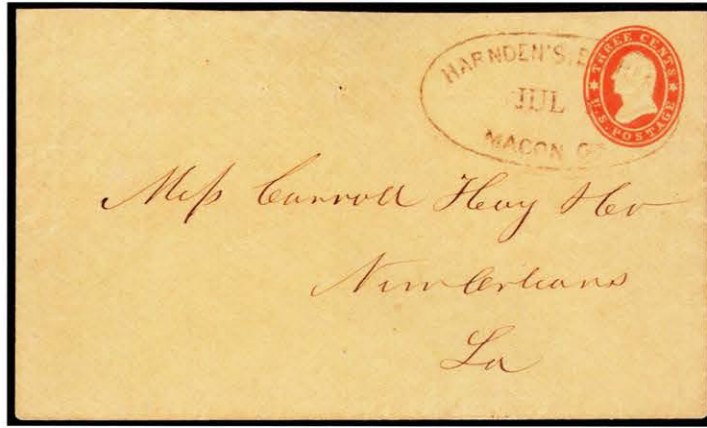 HARNDEN'S.
JUL
MACON G
THREE CENTS
U.S. POSTAGE
Mess Carroll Hoy & Co
New Orleans
La